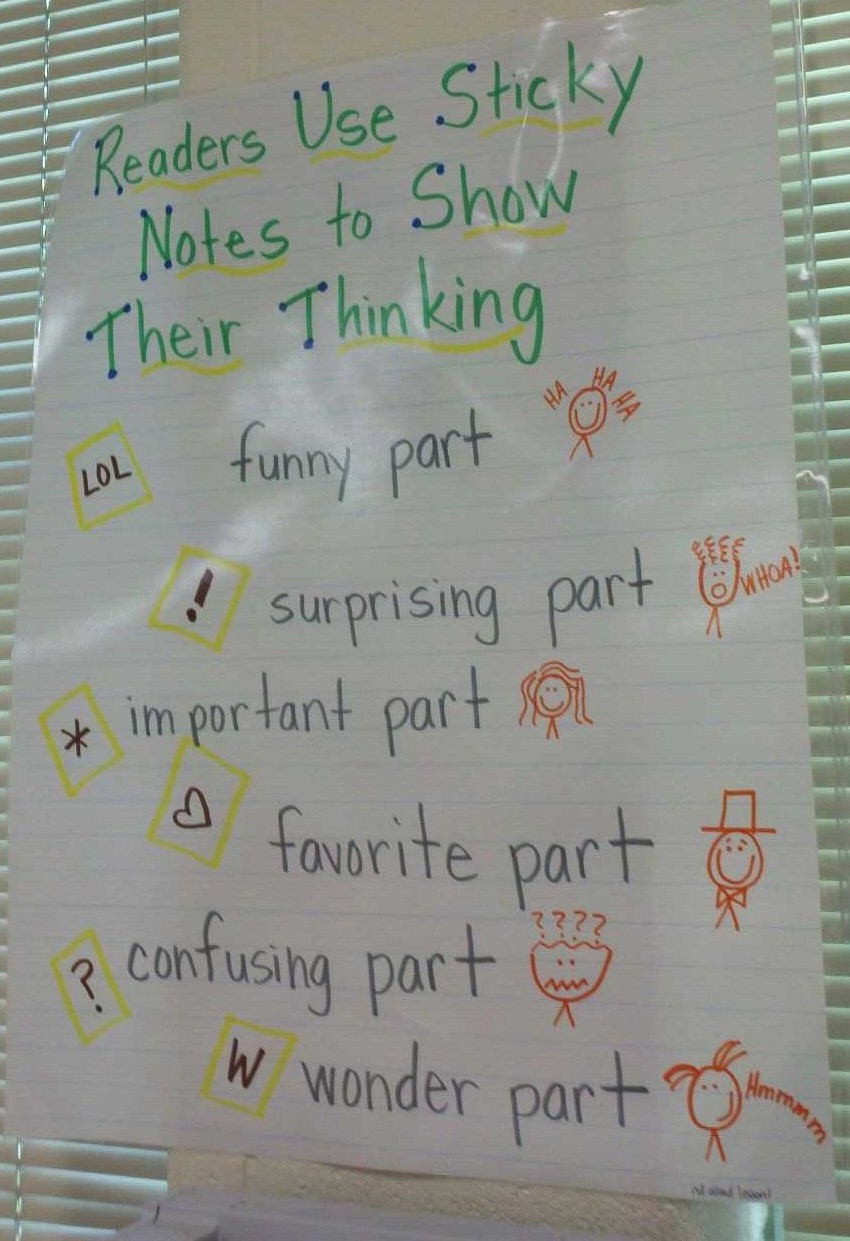 Readers Use Sticky
Notes to Show
Their Thinking
LOL funny part HA HA HA
! surprising part WHOA!
* important part
♡ favorite part
????
? confusing part
W wonder part Hmmmmm